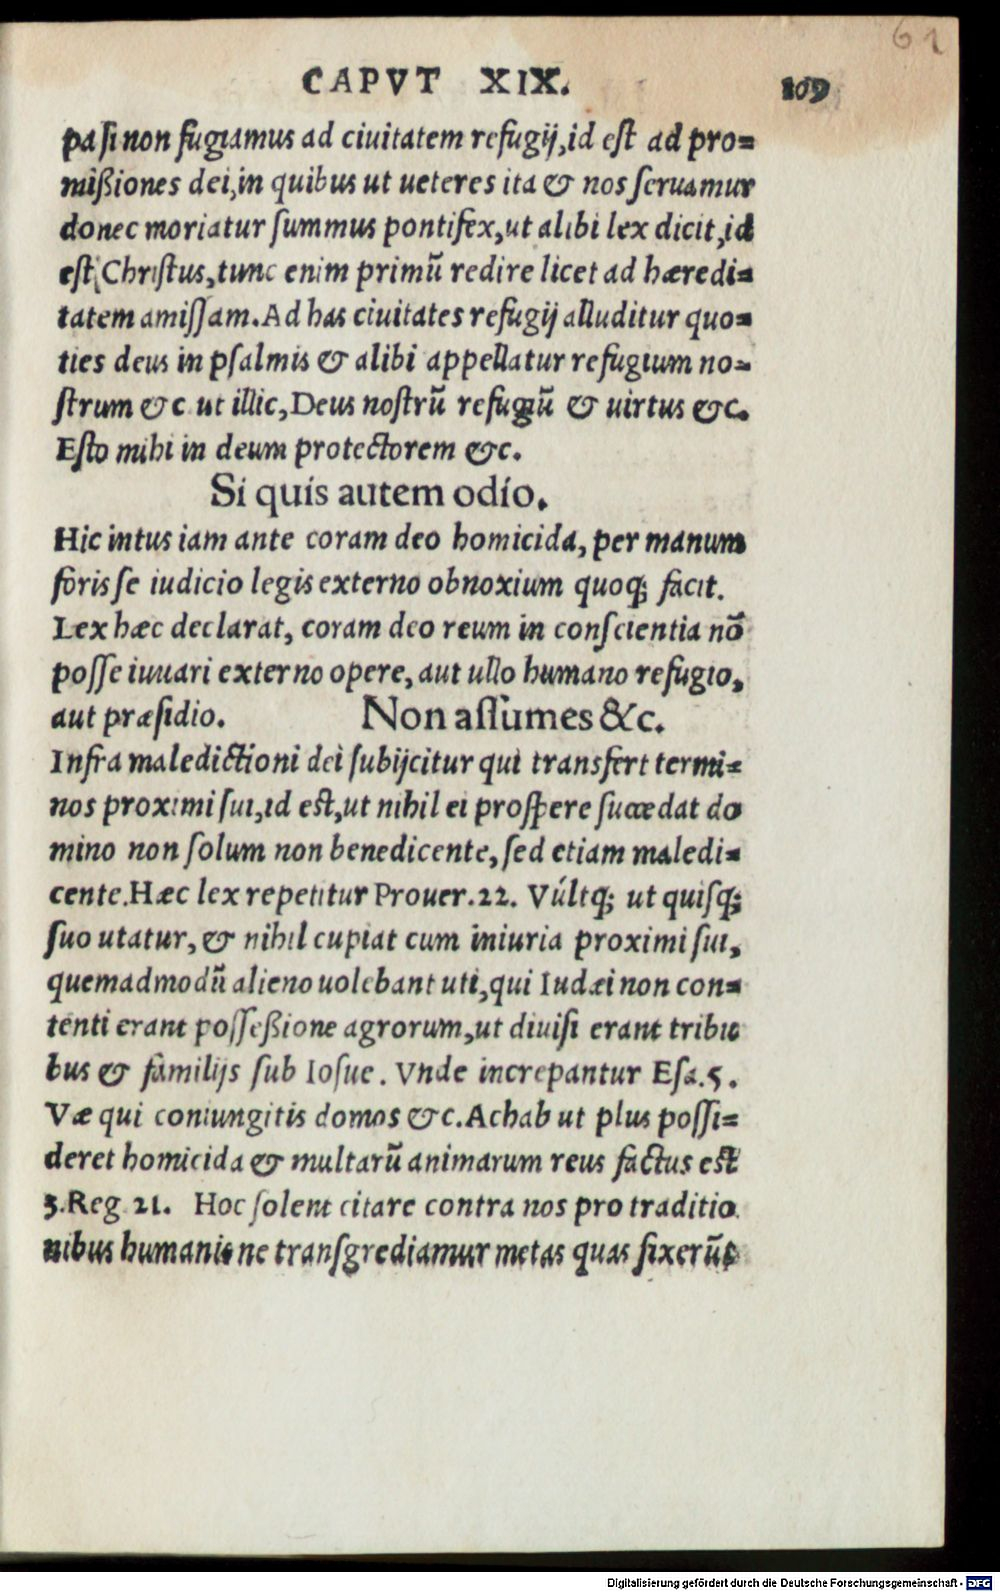 61
CAPVT XIX. 109
pa si non fugiamus ad ciuitatem refugij, id est ad pro=
mißiones dei, in quibus ut ueteres ita & nos seruamur
donec moriatur summus pontifex, ut alibi lex dicit, id
est Christus, tunc enim primũ redire licet ad hæredi=
tatem amissam. Ad has ciuitates refugij alluditur quo=
ties deus in psalmis & alibi appellatur refugium no=
strum &c ut illic, Deus nostrũ refugiũ & uirtus &c.
Esto mihi in deum protectorem &c.
Si quis autem odio.
Hic intus iam ante coram deo homicida, per manum
foris se iudicio legis externo obnoxium quoq; facit.
Lex hæc declarat, coram deo reum in conscientia nõ
posse iuuari externo opere, aut ullo humano refugio,
aut præsidio. Non assumes &c.
Infra maledictioni dei subijcitur qui transfert termi=
nos proximi sui, id est, ut nihil ei prospere succedat do
mino non solum non benedicente, sed etiam maledi=
cente. Hæc lex repetitur Prouer. 22. Vúltq; ut quisq;
suo utatur, & nihil cupiat cum iniuria proximi sui,
quemadmodũ alieno uolebant uti, qui Iudæi non con=
tenti erant posseßione agrorum, ut diuisi erant tribu
bus & familijs sub Iosue. Vnde increpantur Esa. 5.
Væ qui coniungitis domos &c. Achab ut plus possi=
deret homicida & multarũ animarum reus factus est
3. Reg 21. Hoc solent citare contra nos pro traditio
nibus humanis ne transgrediamur metas quas fixerũt
Digitalisierung gefördert durch die Deutsche Forschungsgemeinschaft - DFG